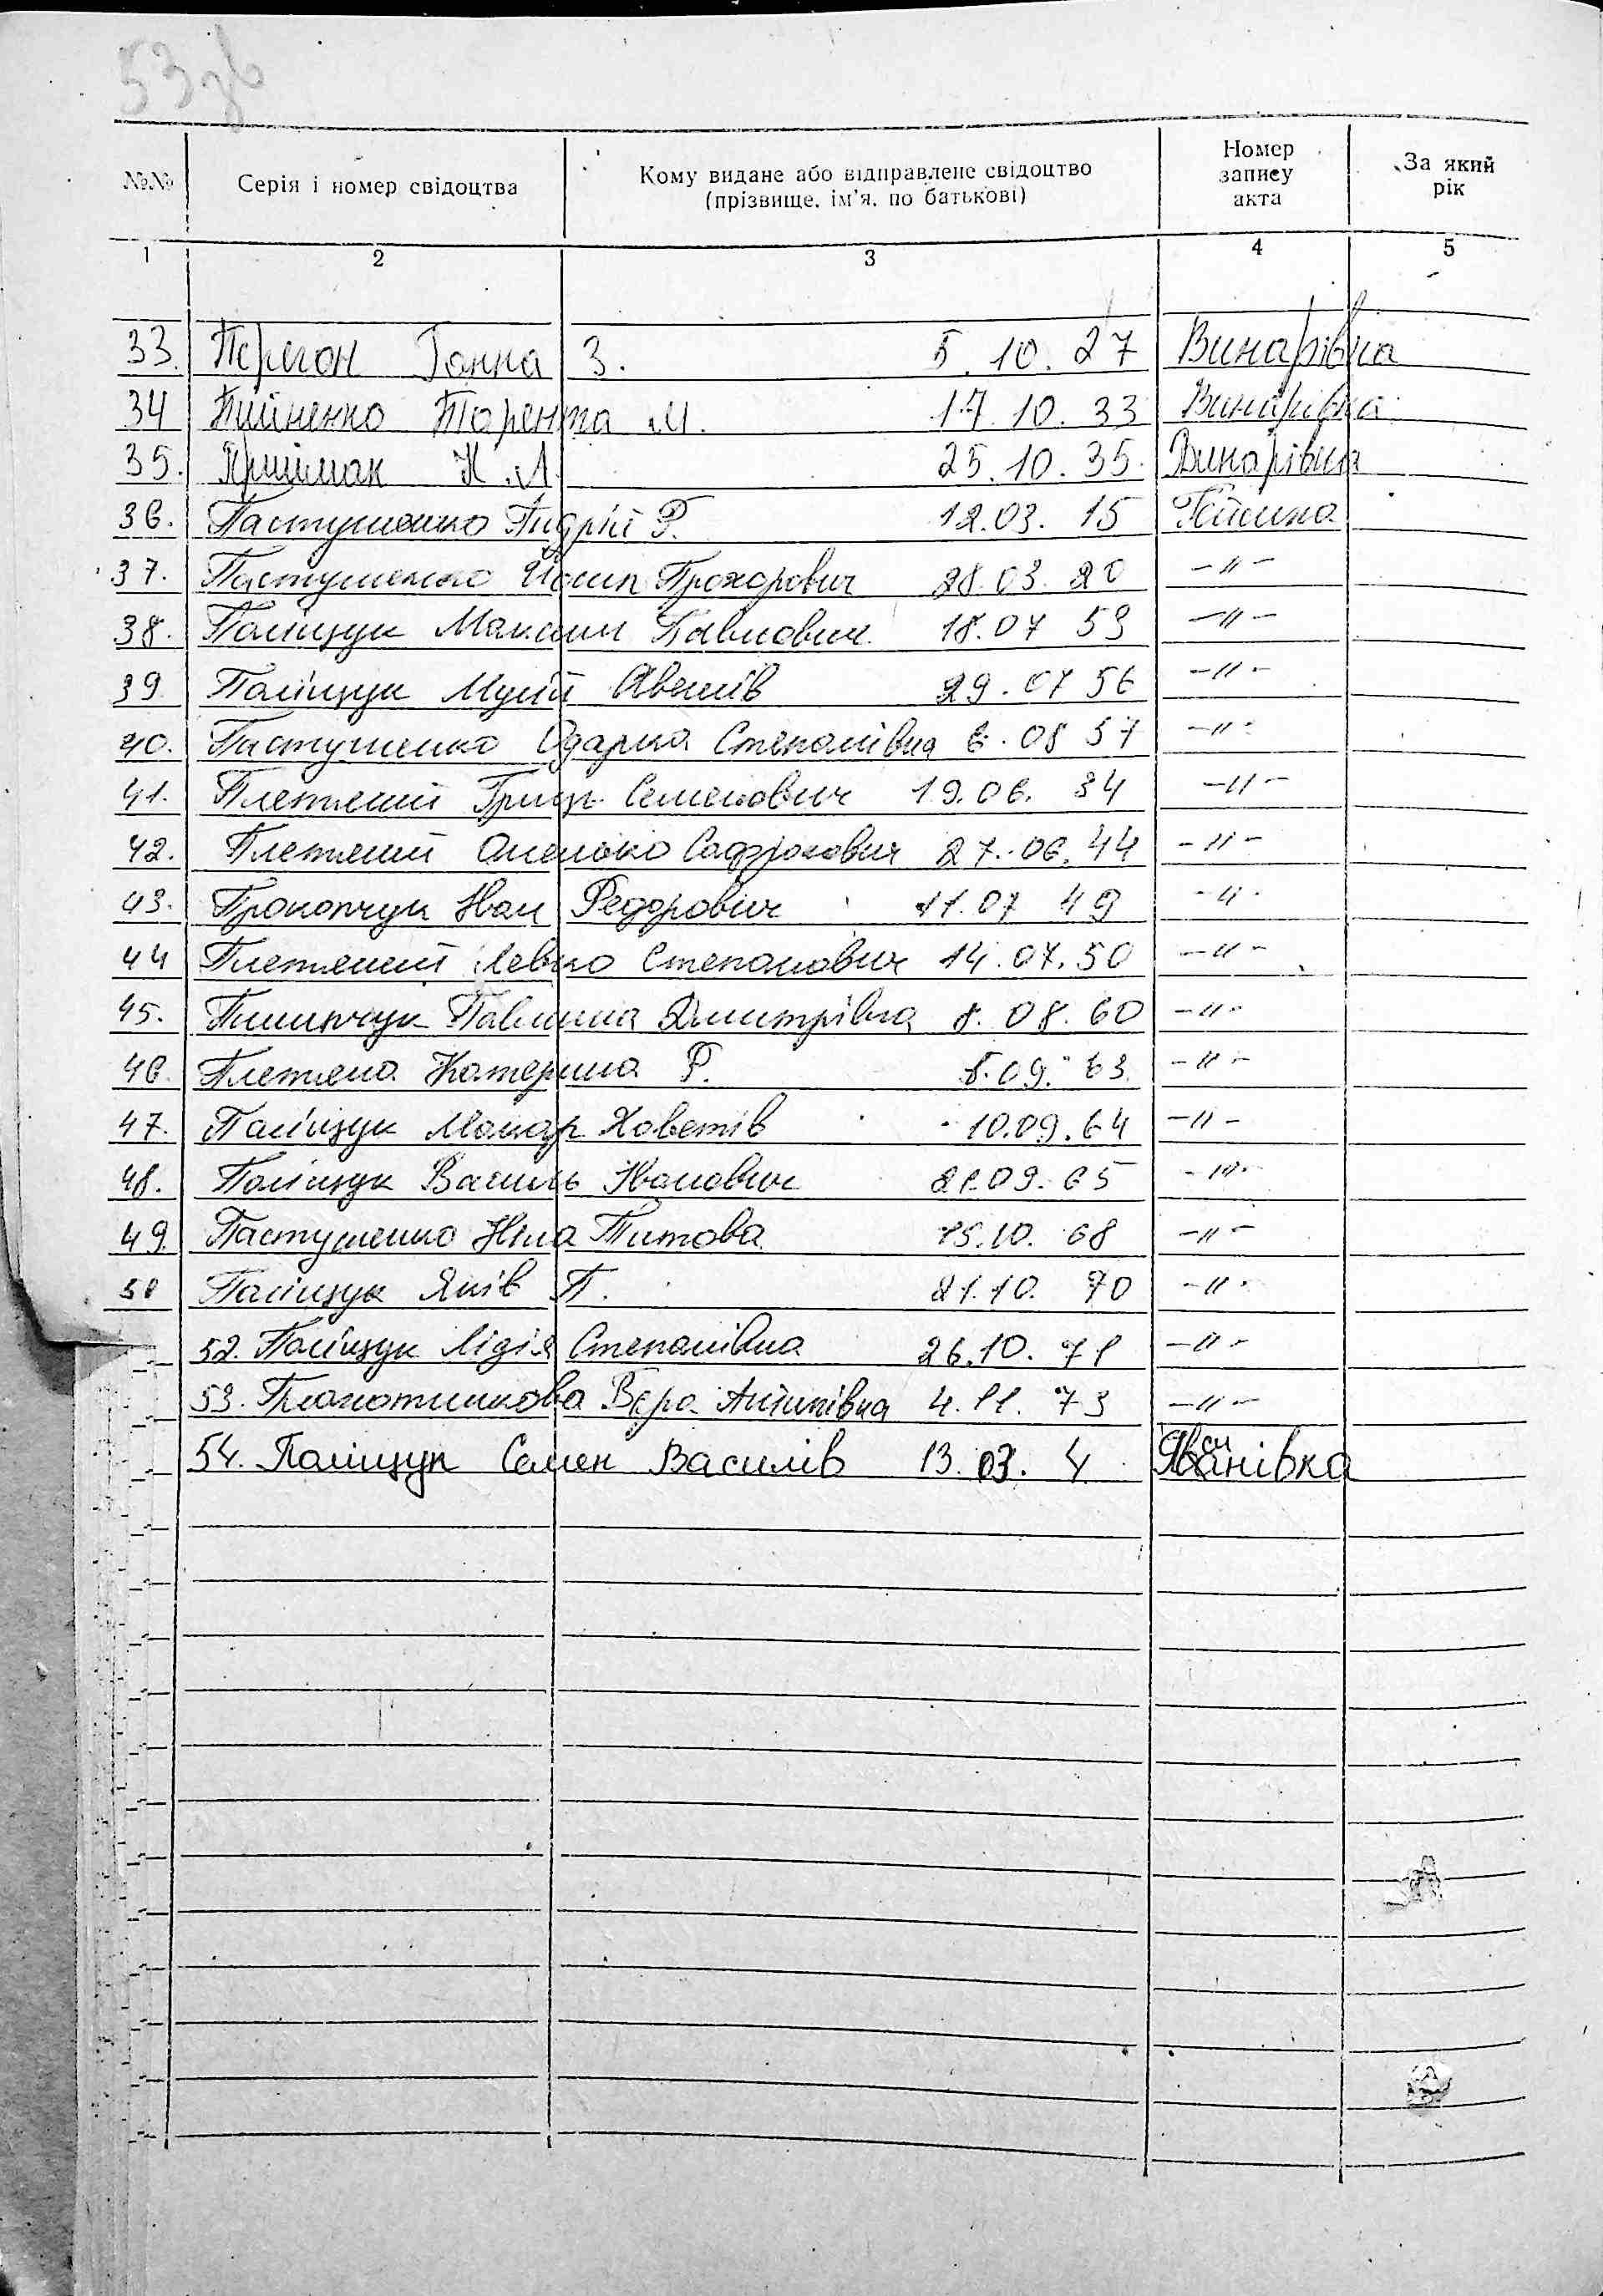 53 зв
№№ Серія і номер свідоцтва Кому видане або відправлене свідоцтво (прізвище, ім'я, по батькові) Номер запису акта За який рік
1 2 3 4 5
33. Перегон Ганна З. 5. 10. 27 Винарівка
34 М. 17. 10. 33 Винарівка
35. Приймак К. Л. 25. 10. 35. Винарівка
36. Пастушенко Андрій Р. 12.03. 15
37. Пастушенко Йосип Прохорович 28.03. 20 -"-
38. Поліщук Максим Павлович 18.07 53 -"-
39 Поліщук Мусій 29.07 56 -"-
40. Пастушенко Одарка Степанівна 6.08 57 -"-
41. Плетений Гриць Семенович 19.06. 34 -"-
42. Плетений Олелько 27.06.44 -"-
43. Прокопчук Іван Федорович 11.07 49 -"-
44 Плетений Левко Степанович 14.07.50 -"-
45. Павлина Дмитрівна 8. 08. 60 -"-
46. Плетена Катерина Р. 8.09. 63 -"-
47. Поліщук Макар 10.09.64 -"-
48. Поліщук Василь Іванович 21.09. 65 -"-
49. Пастушенко Ніна Титова 15.10. 68 -"-
50 Поліщук Яків П. 21.10. 70 -"-
52. Поліщук Лідія Степанівна 26.10. 71 -"-
53. Віра 4.11. 73 -"-
54. Поліщук Семен Василів 13.03. 4